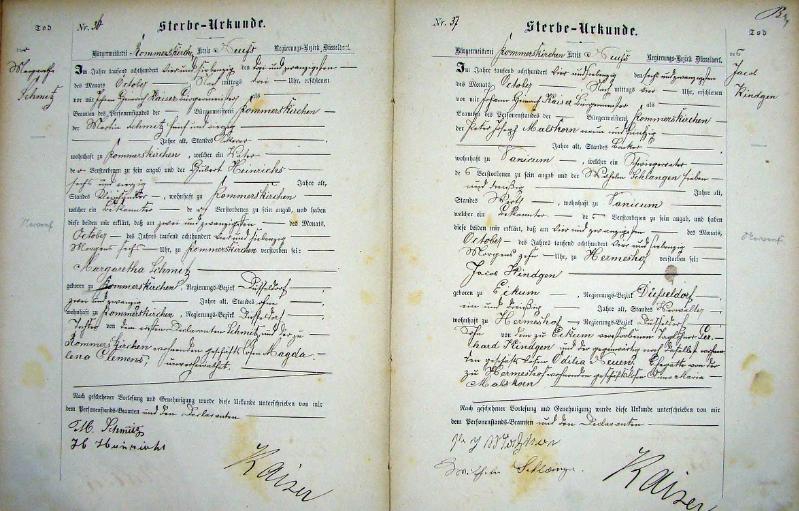 Tod
Nr. 36
Sterbe-Urkunde.
Margaretha
Schmitz
Bürgermeisterei Rommerskirchen Kreis Neuss Regierungs-Bezirk Düsseldorf.
Im Jahre tausend achthundert vier und siebenzig den drei und zwanzigsten
des Monats October mittags Uhr, erschienen
vor Kaiser Bürgermeister als
Beamten des Personenstandes der Bürgermeisterei Rommerskirchen
der Martin Schmitz fünf und
Jahre alt, Standes
wohnhaft zu Rommerskirchen, welcher ein Vater
der Verstorbenen zu sein angab und der Hubert Heinrichs
sechs und Jahre alt,
Standes wohnhaft zu Rommerskirchen
welcher ein Bekannter der Verstorbenen zu sein angab, und haben
diese beiden mir erklärt, daß am zwei und zwanzigsten des Monats
October des Jahres tausend achthundert vier und siebenzig
Morgens sechs Uhr, zu Rommerskirchen verstorben sei:
Margaretha Schmitz
geboren zu Rommerskirchen Regierungs-Bezirk Düsseldorf
zwei und zwanzig Jahre alt, Standes ohne
wohnhaft zu Rommerskirchen, Regierungs-Bezirk Düsseldorf
Tochter von dem ersten Declaranten Schmitz und der zu
Rommerskirchen wohnenden geschäftslosen Magda-
lena Clemens, unverheirathet.
Nach geschehener Vorlesung und Genehmigung wurde diese Urkunde unterschrieben von mir
dem Personenstands-Beamten und den Declaranten
M. Schmitz
H Heinrichs
Kaiser
Nr. 37
Sterbe-Urkunde.
Tod
des
Jacob
Kindgen
Bürgermeisterei Rommerskirchen Kreis Neuss Regierungs-Bezirk Düsseldorf.
Im Jahre tausend achthundert vier und siebenzig den sechs und zwanzigsten
des Monats October mittags Uhr, erschienen
vor Kaiser Bürgermeister als
Beamten des Personenstandes der Bürgermeisterei Rommerskirchen
der Peter Joseph Malzkorn neun und
Jahre alt, Standes
wohnhaft zu Vanicum, welcher ein Schwiegervater
des Verstorbenen zu sein angab und der Wilhelm Schlangen sieben
und dreißig Jahre alt,
Standes Wirth, wohnhaft zu Vanicum
welcher ein Bekannter des Verstorbenen zu sein angab, und haben
diese beiden mir erklärt, daß am vier und zwanzigsten des Monats
October des Jahres tausend achthundert vier und siebenzig
Morgens zehn Uhr, zu Hermeshof verstorben sei:
Jacob Kindgen
geboren zu Eckum, Regierungs-Bezirk Düsseldorf
ein und dreißig Jahre alt, Standes Verwalter
wohnhaft zu Hermeshof Regierungs-Bezirk Düsseldorf
Sohn von dem zu Eckum verstorbenen
Kindgen und der gegenwärtig noch daselbst wohnen-
den geschäftslosen Odilia Ehegatte von der
zu Hermeshof wohnenden geschäftslosen Anna Maria
Malzkorn
Nach geschehener Vorlesung und Genehmigung wurde diese Urkunde unterschrieben von mir
dem Personenstands-Beamten und den Declaranten
P J Malzkorn
Wilhelm Schlangen
Kaiser